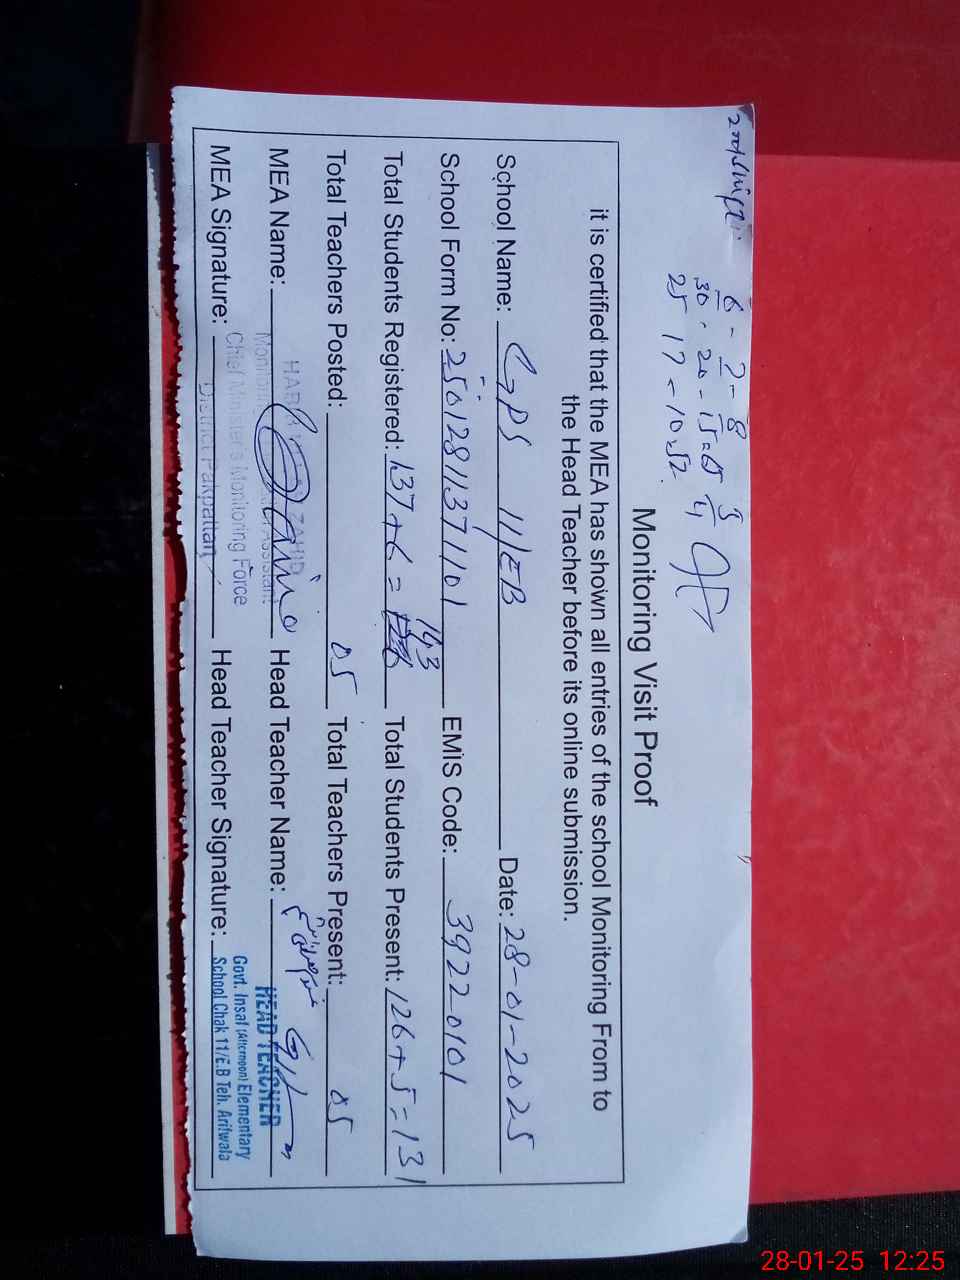 6 - 7 - 8
30 - 20 - 15 = 65
25 17 - 10 = 52
Monitoring Visit Proof
it is certified that the MEA has shown all entries of the school Monitoring From to
the Head Teacher before its online submission.
School Name: GPS 11/EB Date: 28-01-2025
School Form No: 250128113711101 EMIS Code: 39220101
143
Total Students Registered: 137+6= Total Students Present: 126+5=131
Total Teachers Posted: 05 Total Teachers Present: 05
MEA Name: Head Teacher Name:
MEA Signature: Head Teacher Signature:
ZAHID
Monitoring Assistant
Chief Minister's Monitoring Force
District Pakpattan
HEAD TEACHER
Govt. Insaf (Afternoon) Elementary
School Chak 11/E.B Teh. Arifwala
28-01-25 12:25